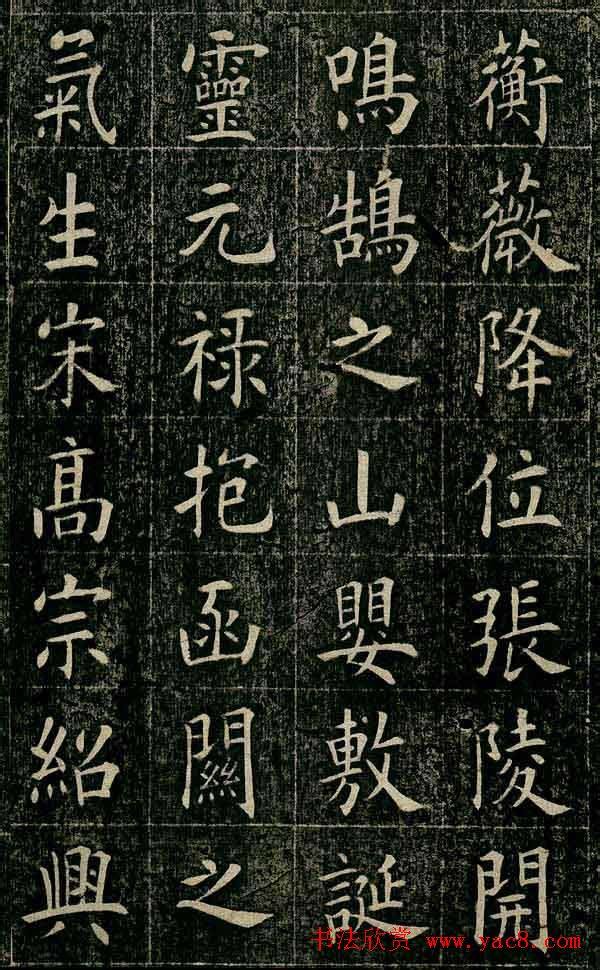 蘅薇降位張陵開
鳴鵠之山嬰敷誕
靈元禄抱函關之
氣生宋高宗紹興
书法欣赏 www.yac8.com